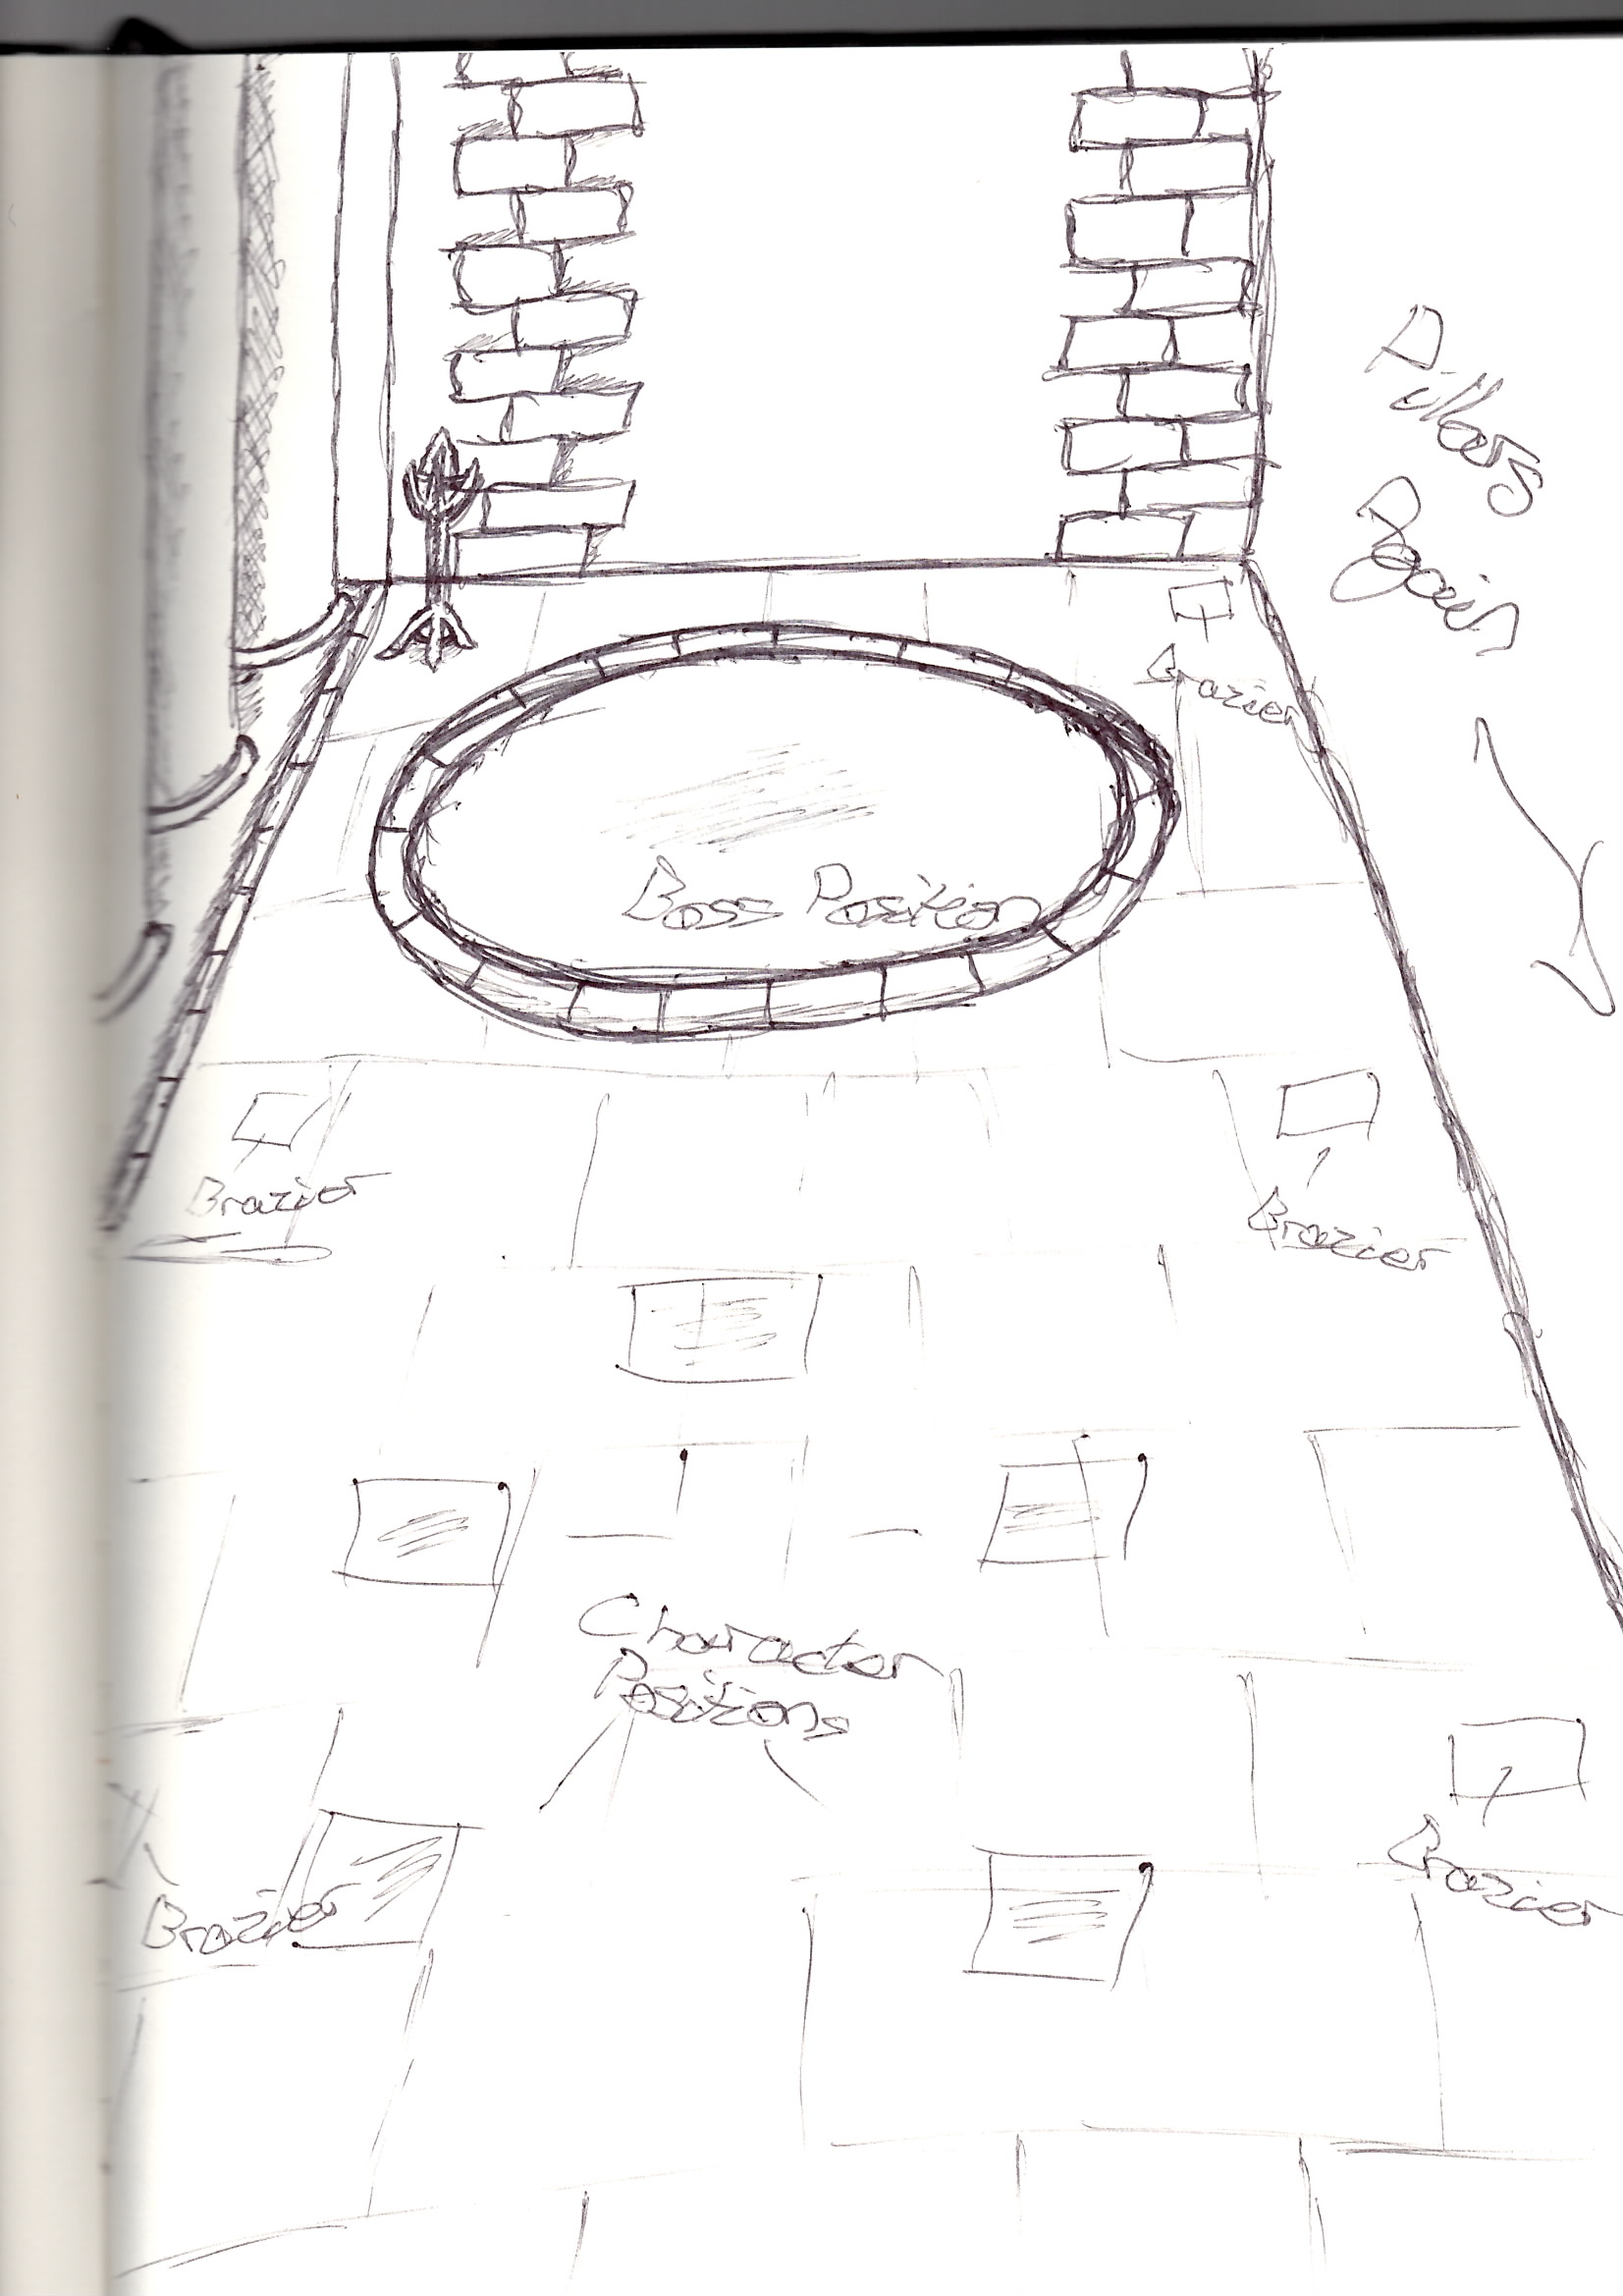 Pillars
Again
Brazier
Boss Position
Brazier
Brazier
Character
Positions
Brazier
Brazier